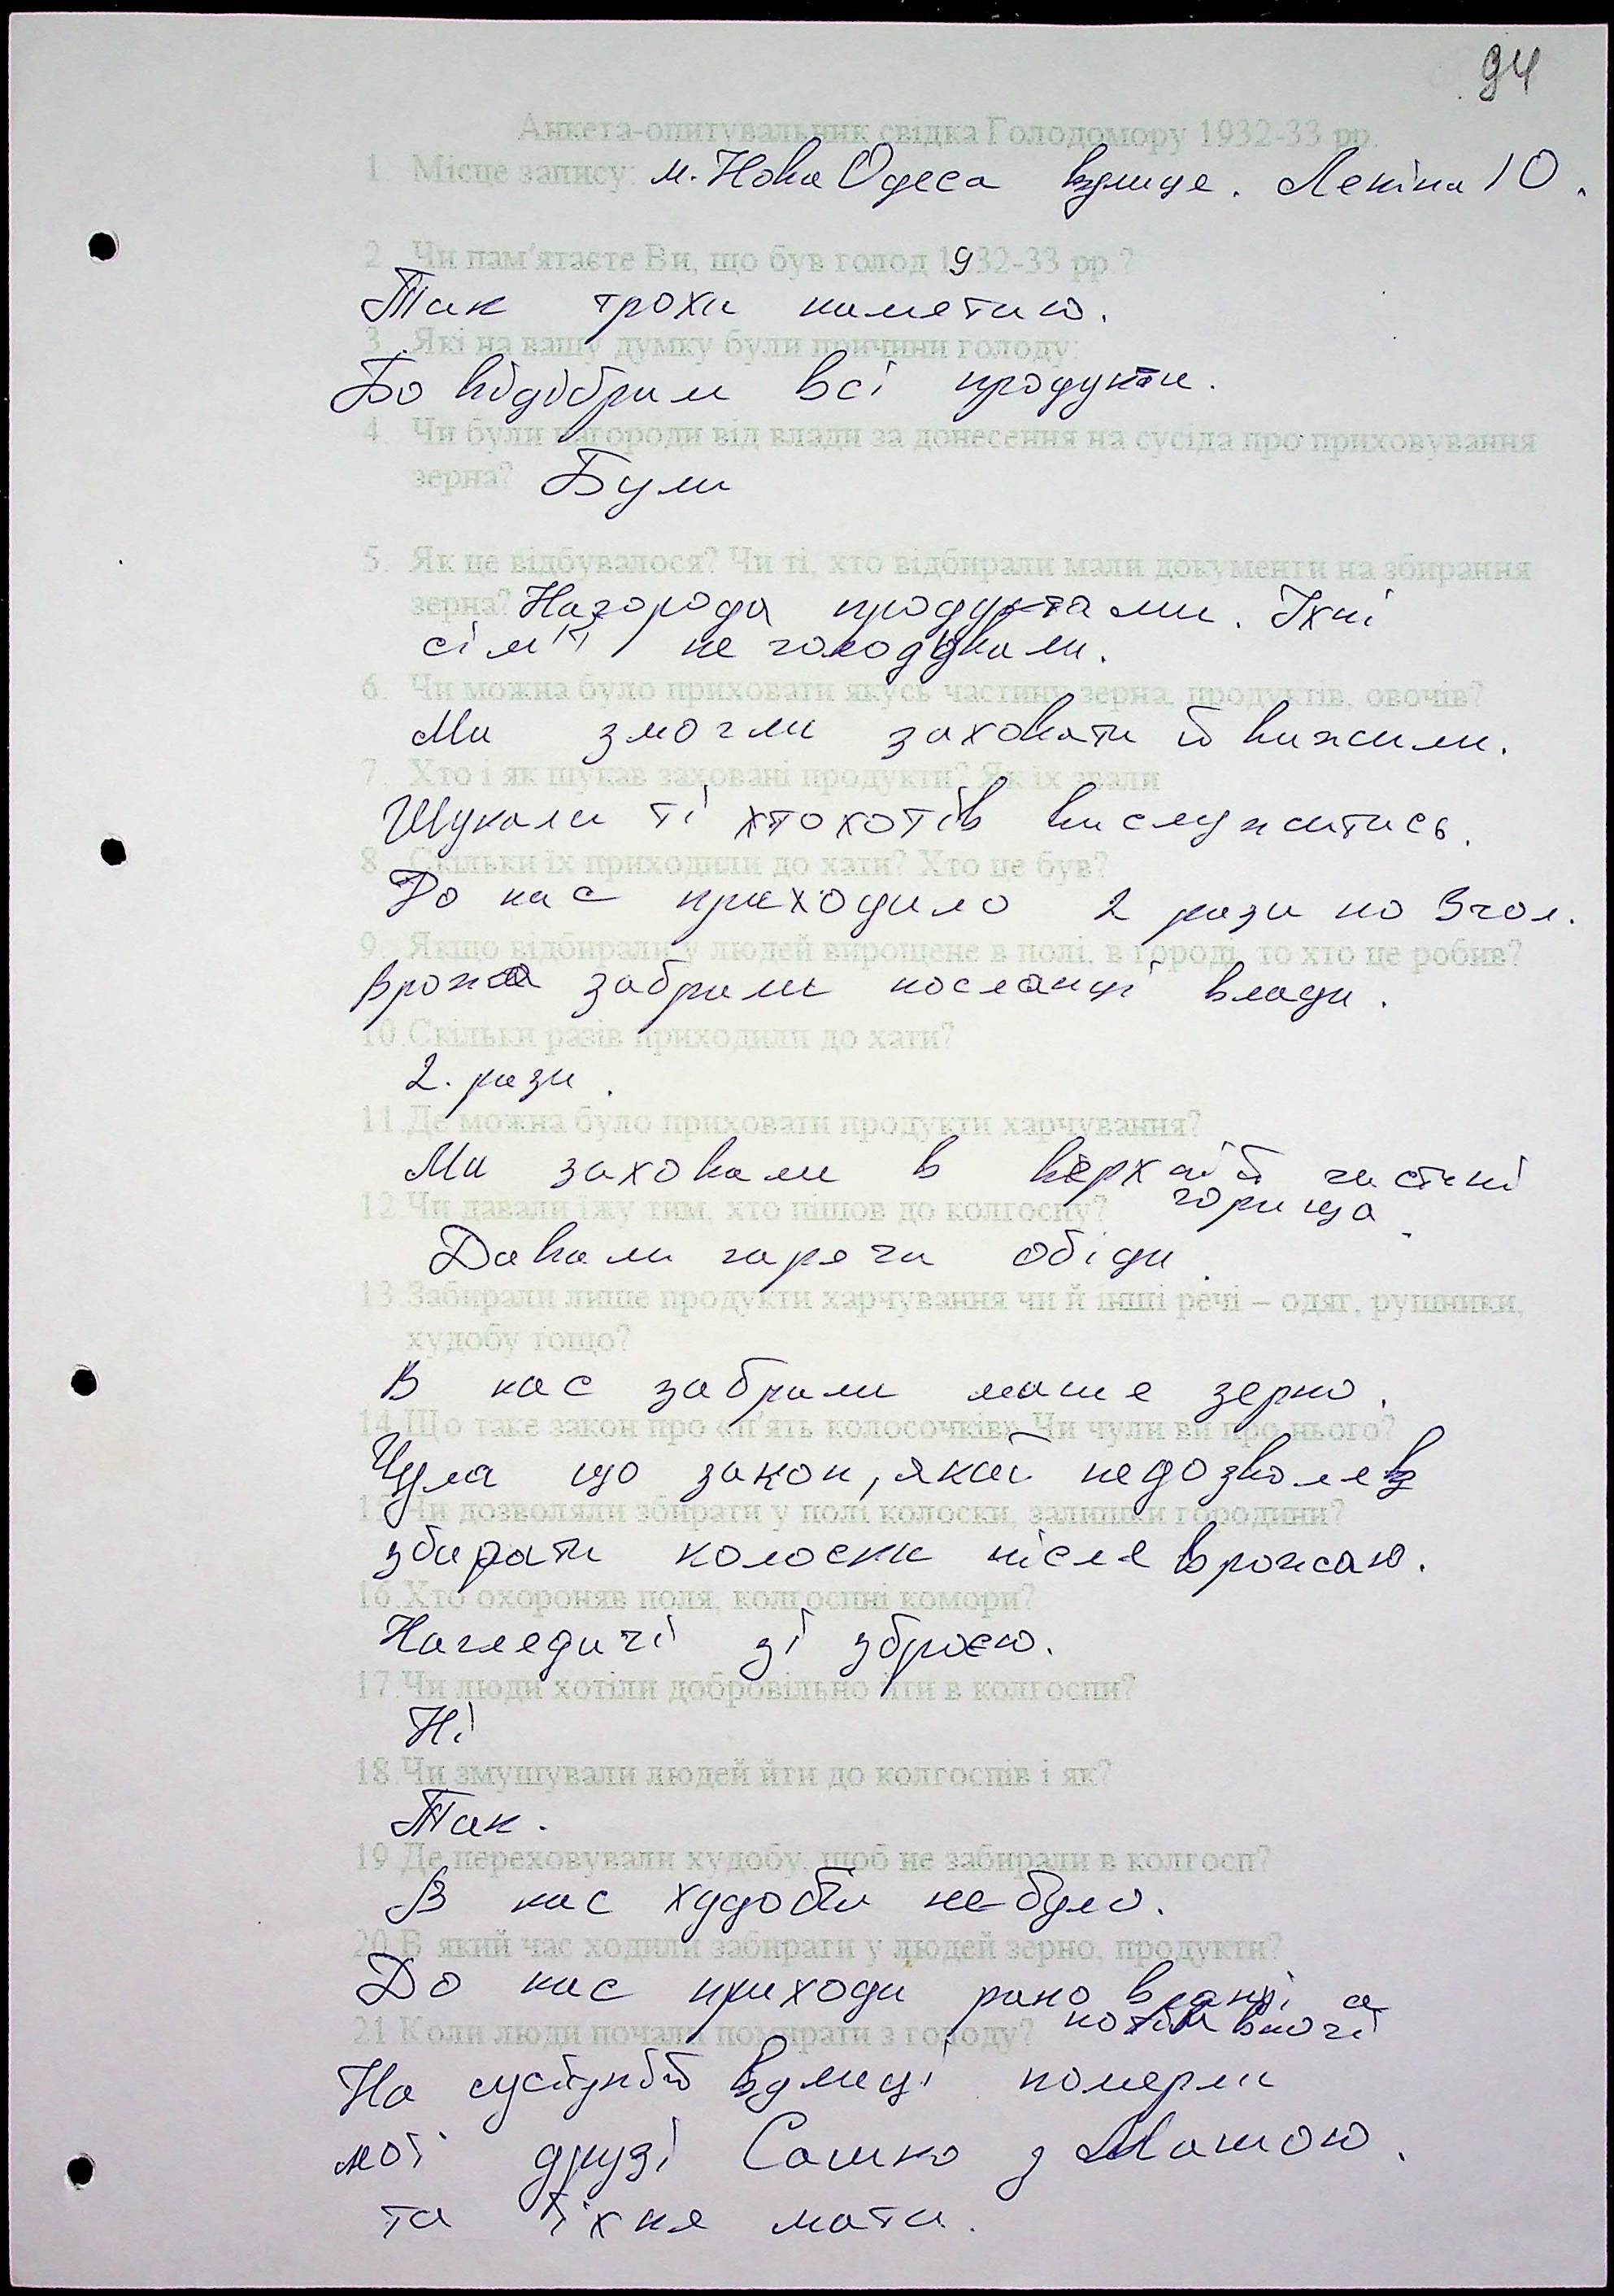 94
Анкета-опитувальник свідка Голодомору 1932-33 рр.
1. Місце запису: м. Нова Одеса вулице. Леніна 10.
2. Чи пам'ятаєте Ви, що був голод 1932-33 рр ?
Так трохи паметаю.
3. Які на вашу думку були причини голоду:
Бо відібрали всі продукти.
4. Чи були нагороди від влади за донесення на сусіда про приховування
зерна? Були
5. Як це відбувалося? Чи ті, хто відбирали мали документи на збирання
зерна? Нагорода продуктами. Їхні
сім'ї не голодували.
6. Чи можна було приховати якусь частину зерна, продуктів, овочів?
Ми змогли заховати й вижили.
7. Хто і як шукав заховані продукти? Як їх звали
Шукали ті хто хотів вислужитись.
8. Скільки їх приходили до хати? Хто це був?
До нас приходило 2 рази по 3 чол.
9. Якщо відбирали у людей вирощене в полі, в городі, то хто це робив?
забрали посланці влади.
10. Скільки разів приходили до хати?
2. рази.
11. Де можна було приховати продукти харчування?
Ми заховали в верхній частині
горища.
12. Чи давали їжу тим, хто пішов до колгоспу?
Давали гарячи обіди.
13. Забирали лише продукти харчування чи й інші речі – одяг, рушники,
худобу тощо?
В нас забрали лише зерно.
14. Що таке закон про «п'ять колосочків» Чи чули ви про нього?
Чула що закон, який недозволяв
15. Чи дозволяли збирати у полі колоски, залишки городини?
збирати колоски після врожаю.
16. Хто охороняв поля, колгоспні комори?
Наглядачі зі зброєю.
17. Чи люди хотіли добровільно йти в колгоспи?
Ні
18. Чи змушували людей йти до колгоспів і як?
Так.
19. Де переховували худобу, щоб не забирали в колгосп?
В нас худоби не було.
20. В який час ходили забирати у людей зерно, продукти?
До нас приходи рано вранці а
потім вночі
21. Коли люди почали помирати з голоду?
На сусідній вулиці померли
мої друзі Сашко з Машою.
та їхня мати.